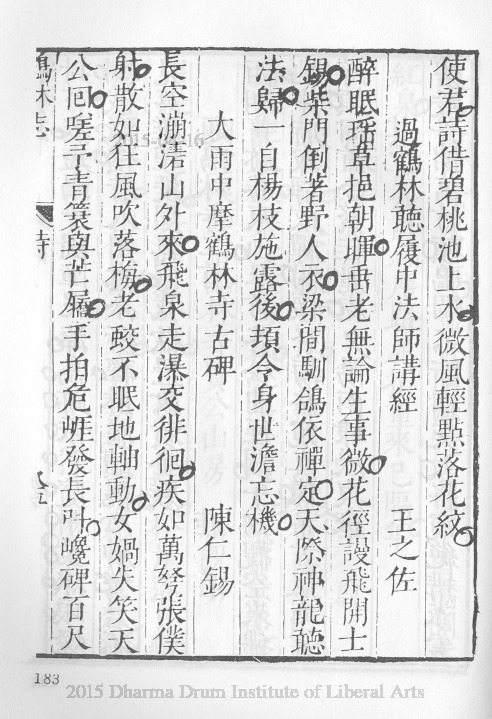 使君詩借碧桃池上水微風輕點落花紋
過鶴林聽履中法師講經 王之佐
醉眠瑤草挹朝暉岳老無論生事微花徑謾飛開士
錫柴門倒著野人衣梁間馴鴿依禪定天際神龍聽
法歸一自楊枝施露後頓令身世澹忘機
大雨中摩鶴林寺古碑 陳仁錫
長空漰湱山外來飛泉走瀑交徘徊疾如萬弩張僕
射散如狂風吹落梅老蛟不眠地軸動女媧失笑天
公回嗟予青簑與芒屩手拍危崕發長叶巉碑百尺
鶴林志 詩
183
2015 Dharma Drum Institute of Liberal Arts